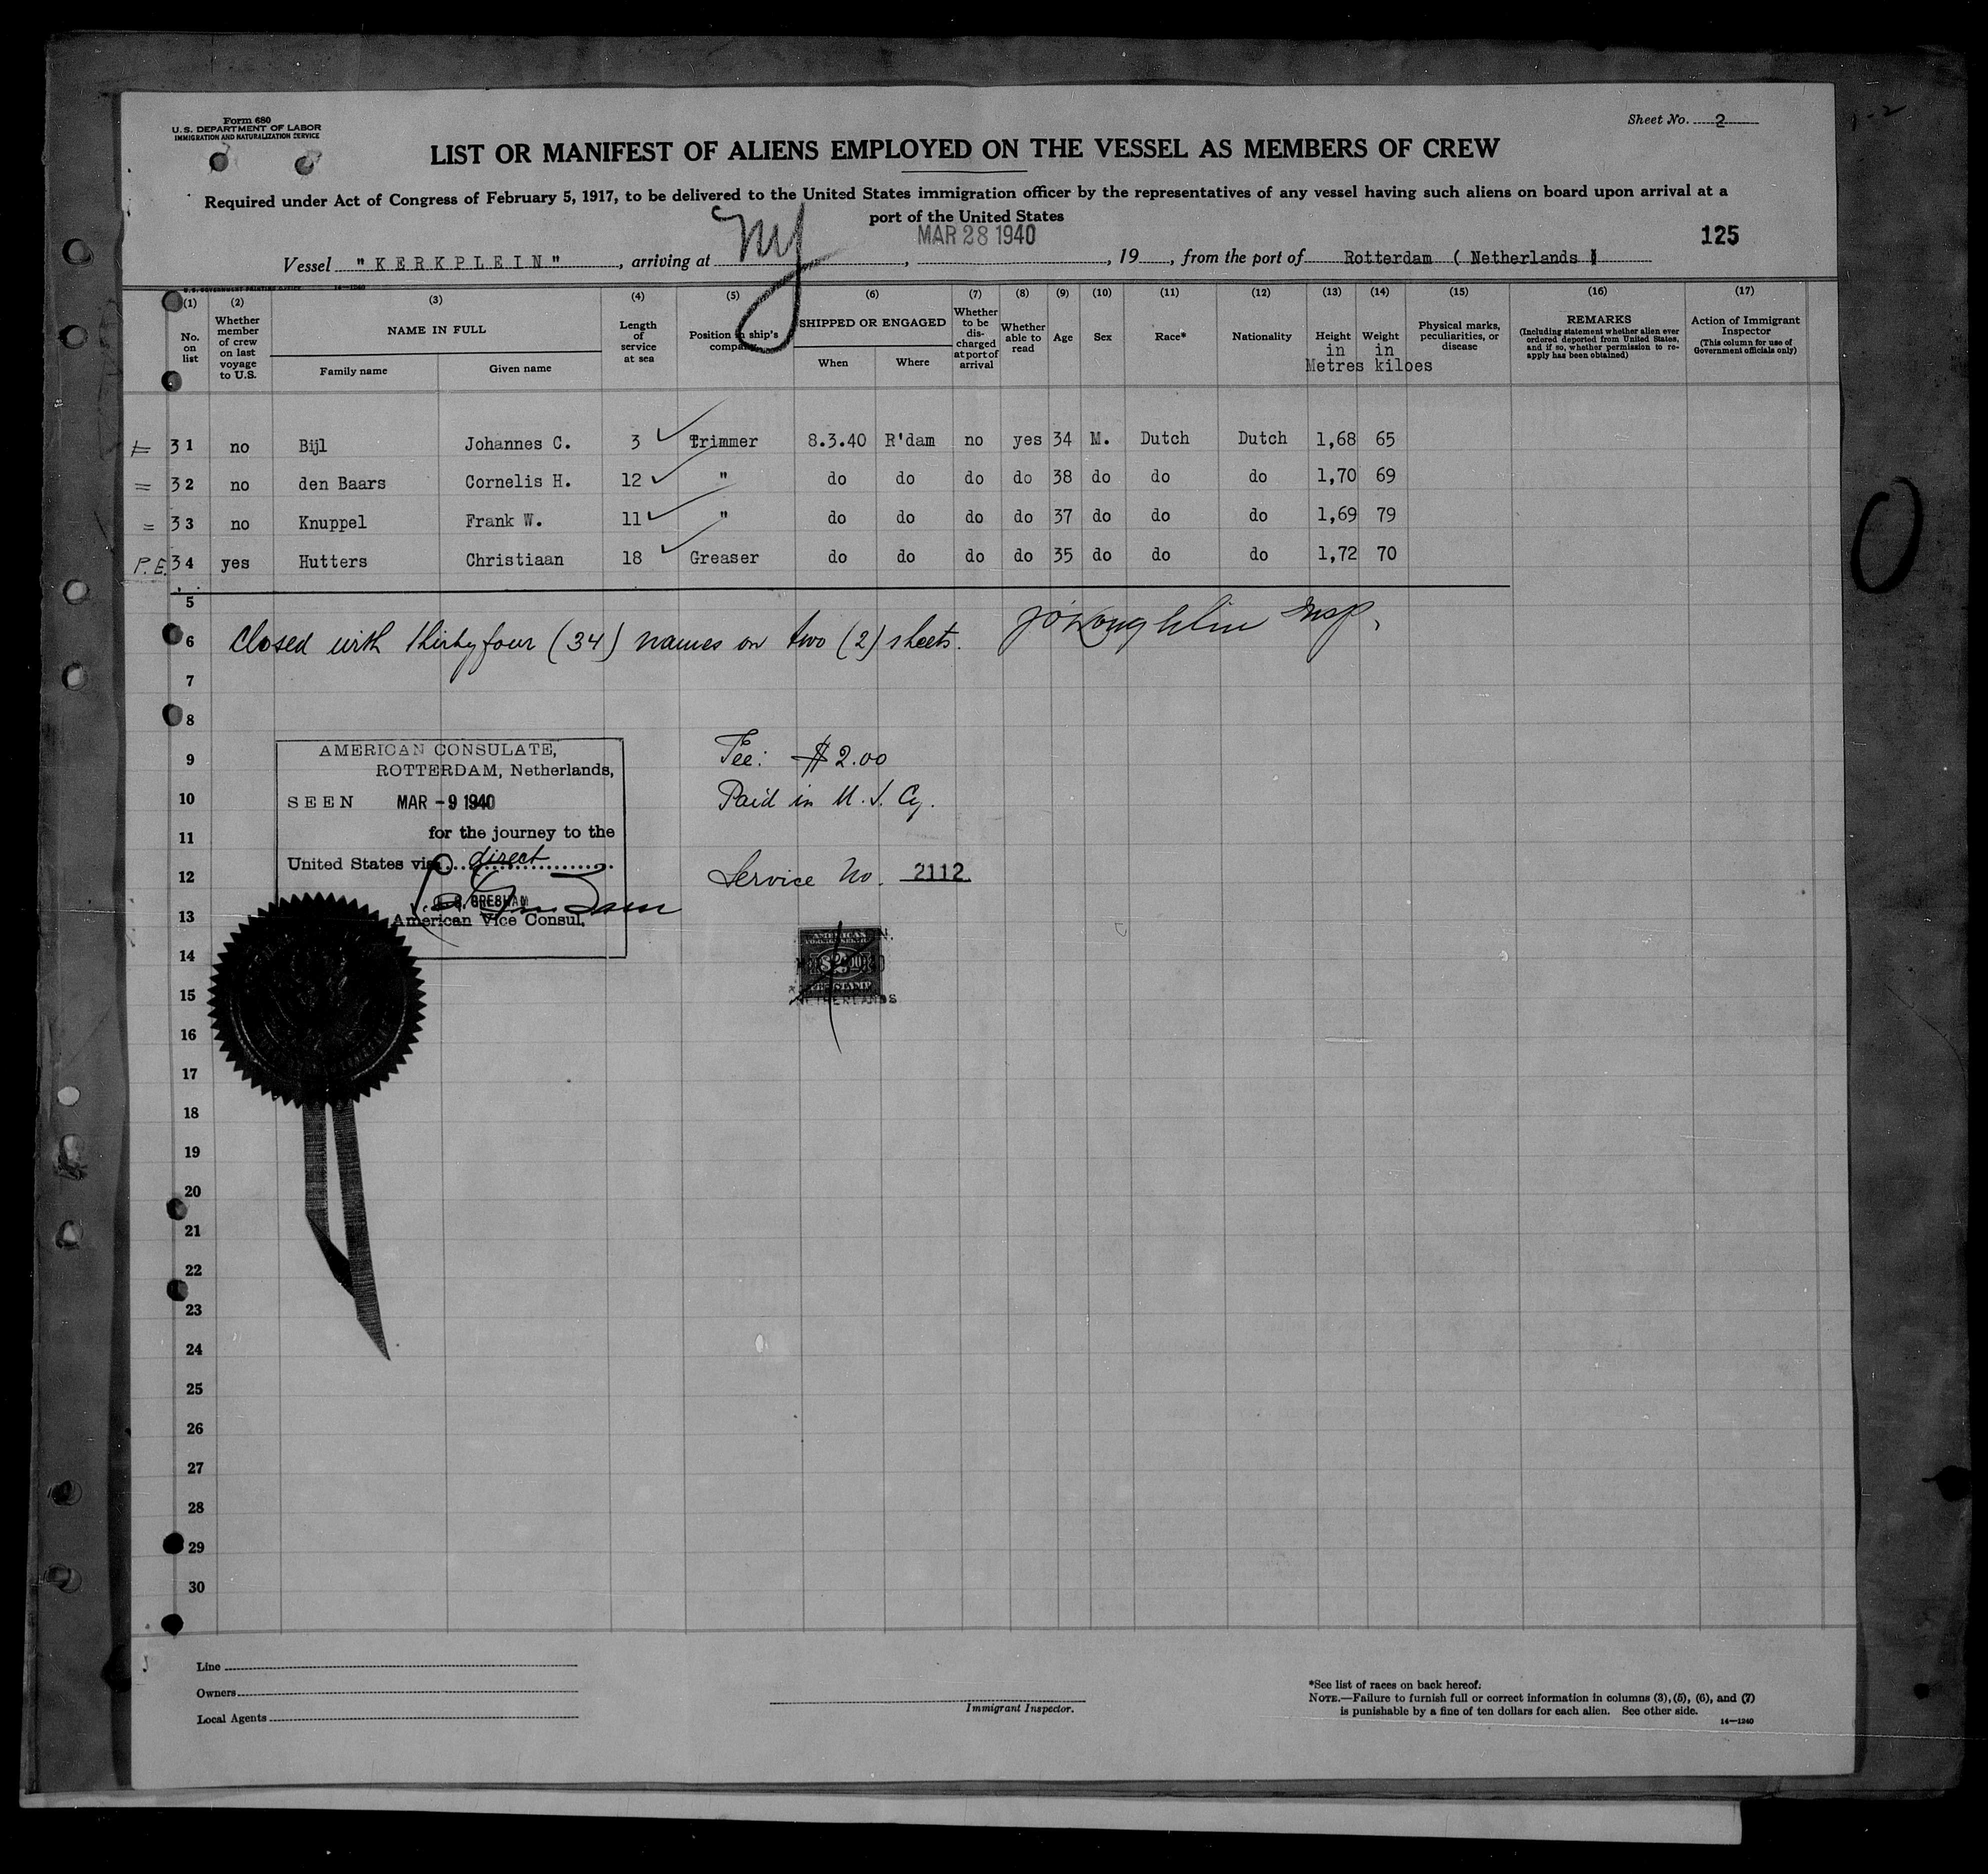 Form 680
U. S. DEPARTMENT OF LABOR
IMMIGRATION AND NATURALIZATION SERVICE
Sheet No. 2
LIST OR MANIFEST OF ALIENS EMPLOYED ON THE VESSEL AS MEMBERS OF CREW
Required under Act of Congress of February 5, 1917, to be delivered to the United States immigration officer by the representatives of any vessel having such aliens on board upon arrival at a
port of the United States
MAR 28 1940
125
Vessel "KERKPLEIN", arriving at NY, 19, from the port of Rotterdam (Netherlands)
U.S. GOVERNMENT PRINTING OFFICE 14-1240
(1) (2) (3) (4) (5) (6) (7) (8) (9) (10) (11) (12) (13) (14) (15) (16) (17)
No. on list
Whether member of crew on last voyage to U.S.
NAME IN FULL
Family name
Given name
Length of service at sea
Position in ship's company
SHIPPED OR ENGAGED
When
Where
Whether to be discharged at port of arrival
Whether able to read
Age
Sex
Race*
Nationality
Height in Metres
Weight in kiloes
Physical marks, peculiarities, or disease
REMARKS
(Including statement whether alien ever ordered deported from United States, and if so, whether permission to re-apply has been obtained)
Action of Immigrant Inspector
(This column for use of Government officials only)
31 no Bijl Johannes C. 3 Trimmer 8.3.40 R'dam no yes 34 M. Dutch Dutch 1,68 65
32 no den Baars Cornelis H. 12 " do do do do 38 do do do 1,70 69
33 no Knuppel Frank W. 11 " do do do do 37 do do do 1,69 79
P.E. 34 yes Hutters Christiaan 18 Greaser do do do do 35 do do do 1,72 70
5
6 Closed with thirty four (34) names on two (2) sheets. Insp.
7
8
AMERICAN CONSULATE,
9 ROTTERDAM, Netherlands, Fee: $2.00
10 SEEN MAR - 9 1940 Paid in U. S. Cy.
11 for the journey to the
United States via direct
12 Service No. 2112
GRESHAM
13 American Vice Consul.
AMERICAN
14
STAMP
15 NETHERLANDS
16
17
18
19
20
21
22
23
24
25
26
27
28
29
30
Line
Owners
Local Agents
Immigrant Inspector.
*See list of races on back hereof.
NOTE.—Failure to furnish full or correct information in columns (3), (5), (6), and (7)
is punishable by a fine of ten dollars for each alien. See other side.
14—1240